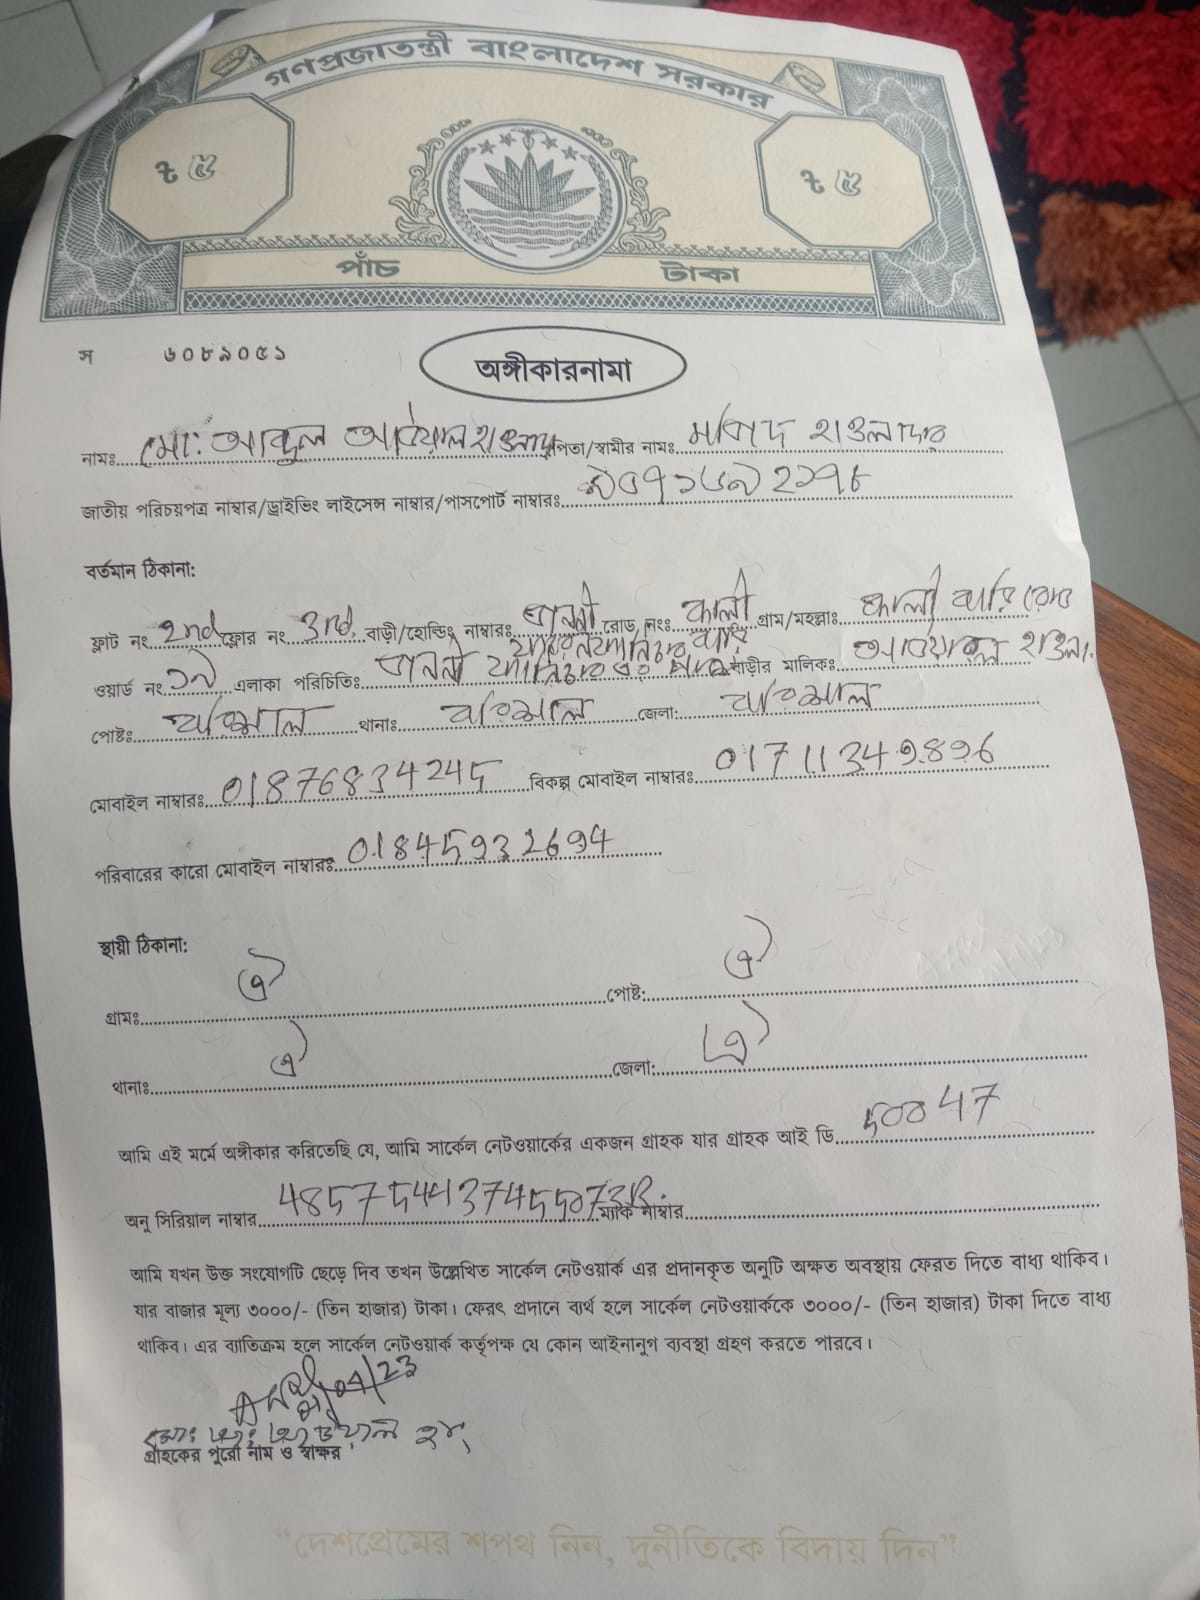 গণপ্রজাতন্ত্রী বাংলাদেশ সরকার
৳ ৫ ৳ ৫
পাঁচ টাকা
স ৬০৮৯০৫১
অঙ্গীকারনামা
নামঃ মোঃ আব্দুল আউয়াল হাওলাদার পিতা/স্বামীর নামঃ মজিদ হাওলাদার
জাতীয় পরিচয়পত্র নাম্বার/ড্রাইভিং লাইসেন্স নাম্বার/পাসপোর্ট নাম্বারঃ
বর্তমান ঠিকানা:
ফ্লাট নং 2nd ফ্লোর নং 3rd, বাড়ী/হোল্ডিং নাম্বারঃ জননী রোড নংঃ কালী গ্রাম/মহল্লাঃ কালী বাড়ি রোড
ওয়ার্ড নং ১৯ এলাকা পরিচিতিঃ জননী বাড়ীর মালিকঃ আউয়াল হাওলা.
পোষ্টঃ বরিশাল থানাঃ বরিশাল জেলা: বরিশাল
মোবাইল নাম্বারঃ 01876834245 বিকল্প মোবাইল নাম্বারঃ 01711349896
পরিবারের কারো মোবাইল নাম্বারঃ 01845932694
স্থায়ী ঠিকানা:
গ্রামঃ ঐ পোষ্ট: ঐ
থানাঃ ঐ জেলা: ঐ
আমি এই মর্মে অঙ্গীকার করিতেছি যে, আমি সার্কেল নেটওয়ার্কের একজন গ্রাহক যার গ্রাহক আই ডি 50047
অনু সিরিয়াল নাম্বার ম্যাক নাম্বার
আমি যখন উক্ত সংযোগটি ছেড়ে দিব তখন উল্লেখিত সার্কেল নেটওয়ার্ক এর প্রদানকৃত অনুটি অক্ষত অবস্থায় ফেরত দিতে বাধ্য থাকিব।
যার বাজার মূল্য ৩০০০/- (তিন হাজার) টাকা। ফেরৎ প্রদানে ব্যর্থ হলে সার্কেল নেটওয়ার্ককে ৩০০০/- (তিন হাজার) টাকা দিতে বাধ্য
থাকিব। এর ব্যতিক্রম হলে সার্কেল নেটওয়ার্ক কর্তৃপক্ষ যে কোন আইনানুগ ব্যবস্থা গ্রহণ করতে পারবে।
গ্রাহকের পুরো নাম ও স্বাক্ষর
"দেশপ্রেমের শপথ নিন, দুর্নীতিকে বিদায় দিন"